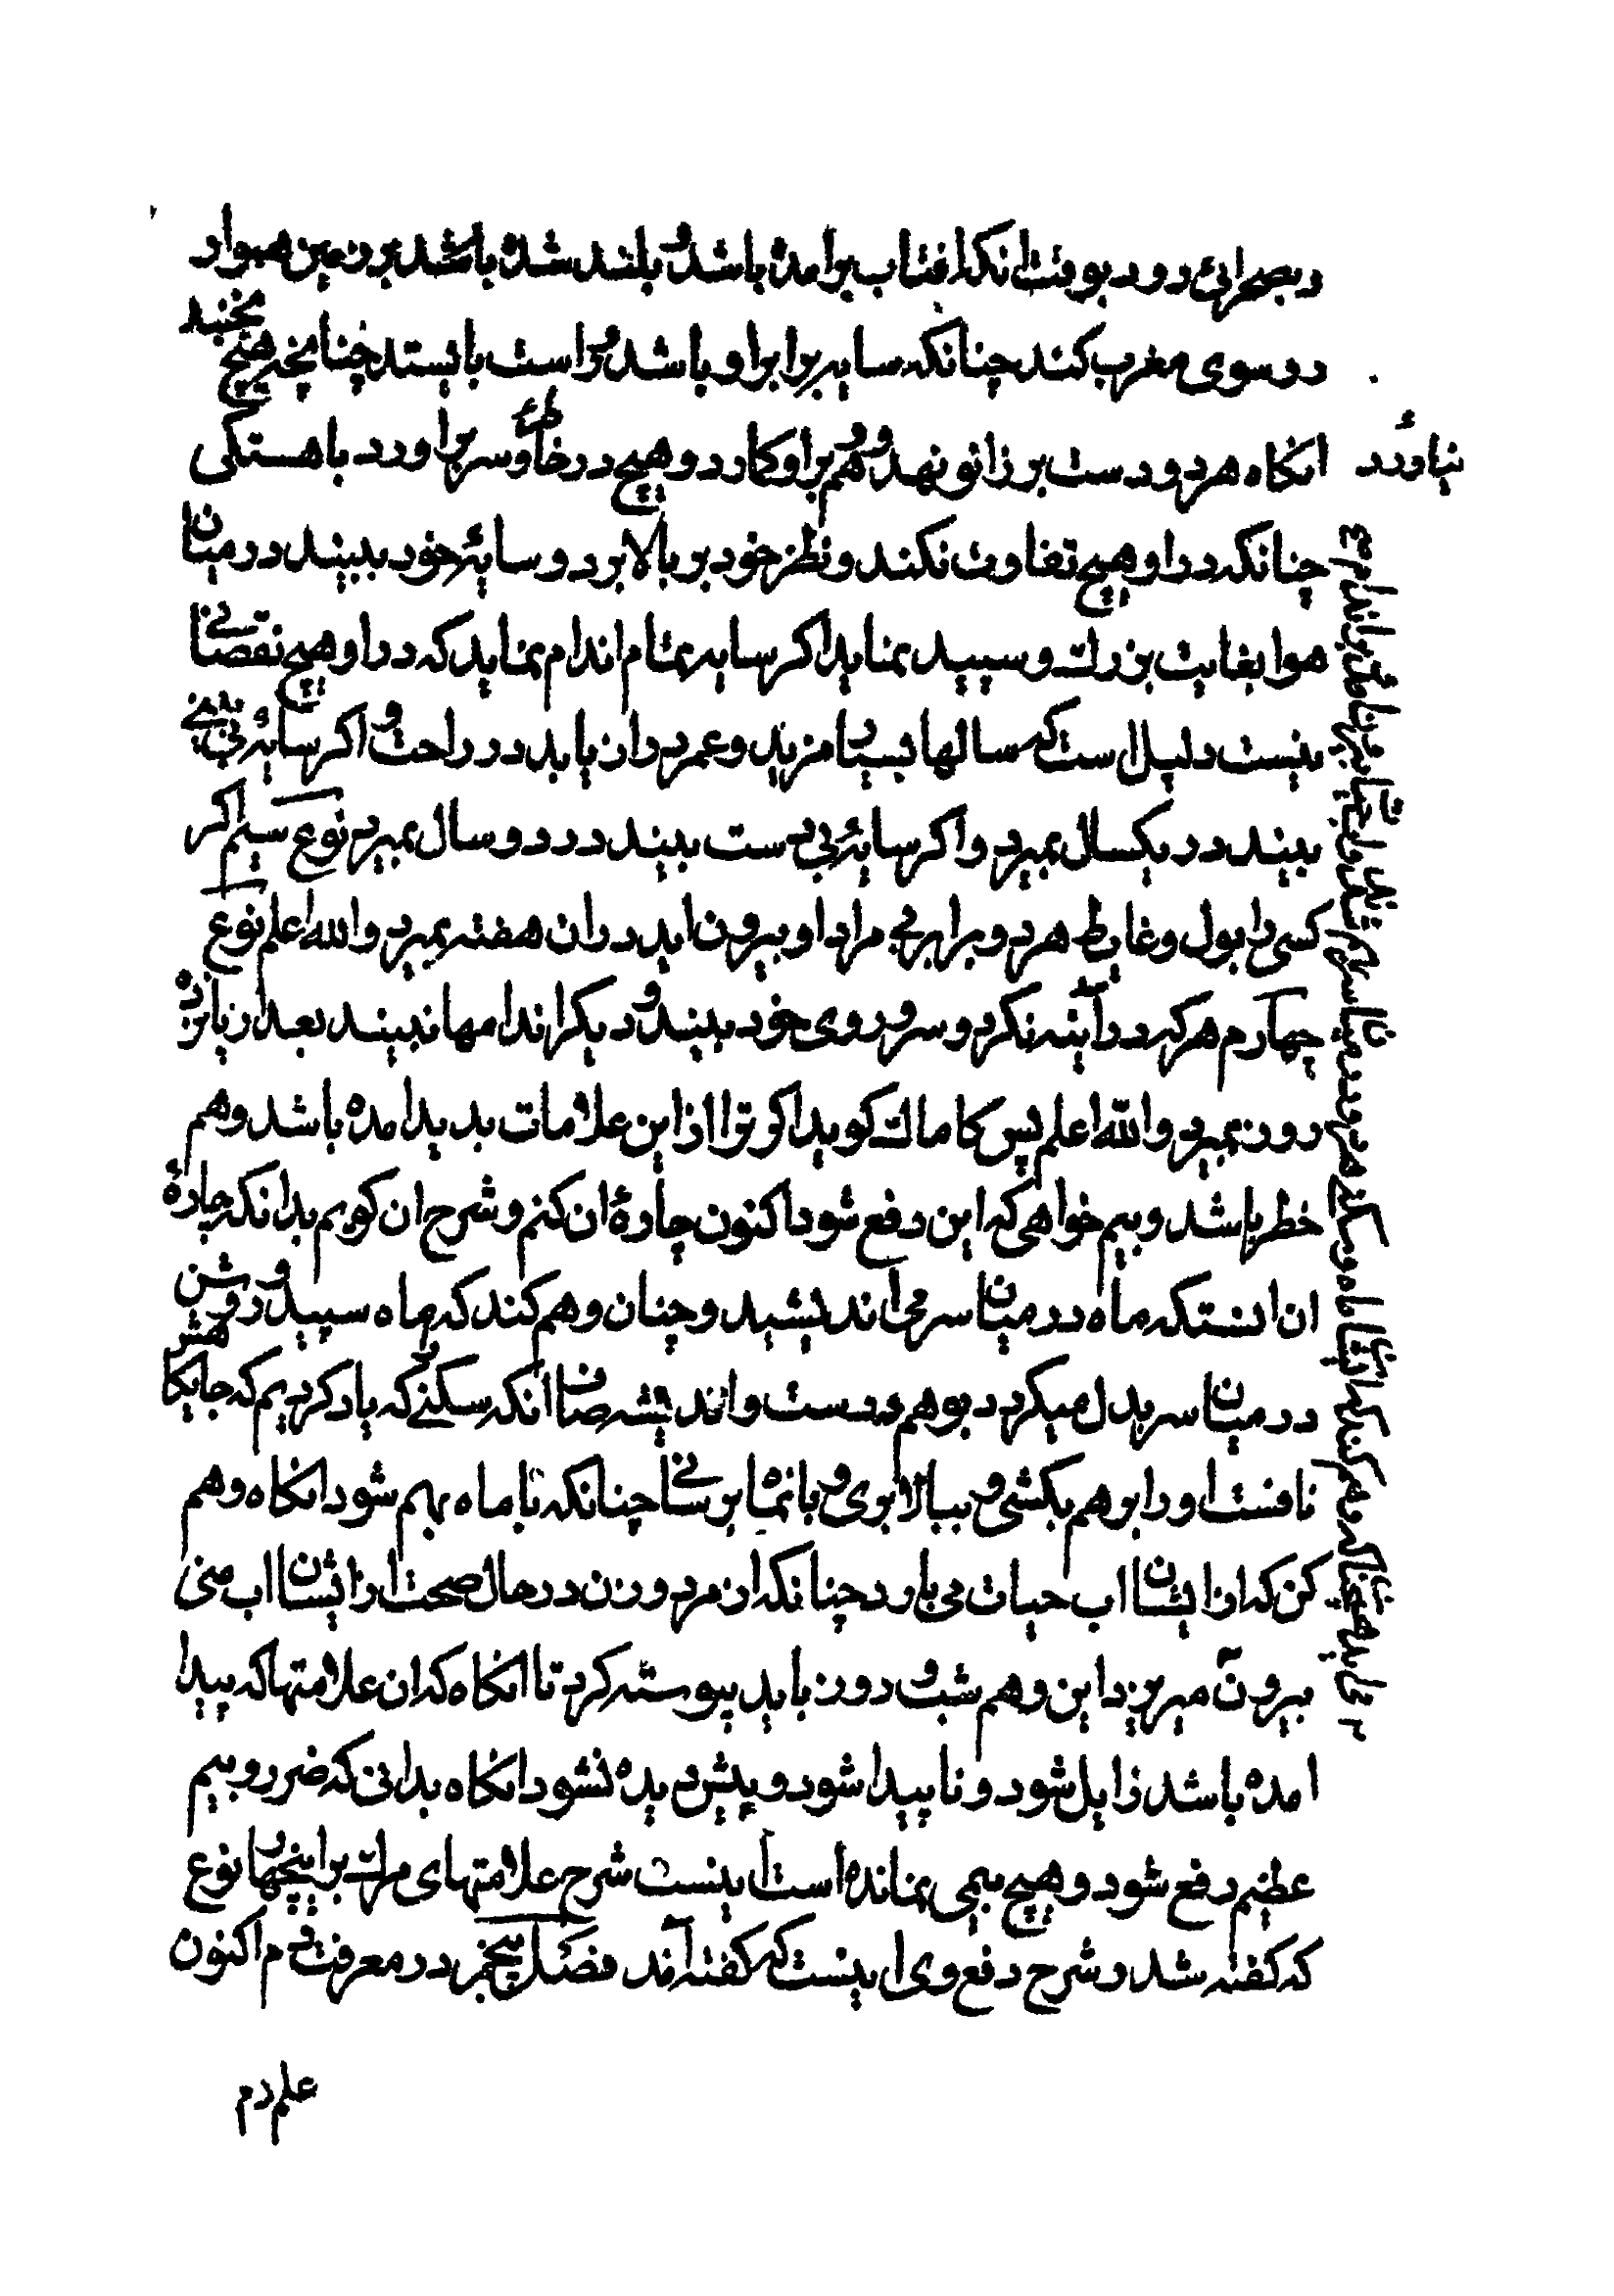 در صحرائی رود بوقت انکه افتاب برامده باشد و بلند شده باشد بر زمین هموار
رو سوی مغرب کند چنانکه سایه برابر او باشد و راست بایستد چنانچه هیچ نجنبد
انکاه هر دو دست بر زانو نهد و وهم بر او کمارد و هیچ در خاطر او سر بر اورد باهستکی
نیاورد
چنانکه در او هیچ تفاوت نکند و نظر خود بر بالا برد و سایۀ خود ببیند در میان
هوا بغایت بزرك و سپید بنماید اکر سایه بتمام اندام بنماید که در او هیچ نقصانی
نیست دلیل است که سالها بسیار مزید و عمر دراز یابد در راحت و اکر سایۀ بی بینی
بیند در یکسال بمیرد و اکر سایۀ بی دست بیند در دو سال بمیرد نوع سیم اکر
کسی را بول و غایط هر دو برابر بی مراد او بیرون اید در ان هفته بمیرد والله اعلم نوع
چهارم هر که در آینه نکرد و سر و روی خود بیند و دیکر اندامها نبیند بعد از پانزده
روز بمیرد والله اعلم پس کاماك کوید اکر ترا از این علامات پدید امده باشد و هم
خطر باشد و بیم خواهی که این دفع شود اکنون چارۀ ان کنم و شرح ان کویم بدانکه چارۀ
ان انستکه ماه در میان سر می اندیشید و چنان وهم کند که ماه سپید و روشن
در میان سر بدل میکردد بوهم درست و اندیشه صافی انکه سکنی که یاد کردیم که جایکاهش
نافست او را بوهم بکشی و ببالا بری و بانجا برسانی چنانکه با ماه بهم شود انکاه وهم
کن که از ایشان اب حیات می بارد چنانکه از مرد و زن در حال صحبت از ایشان اب منی
بیرون میریزد این وهم شب و روز باید پیوسته کرد تا انکاه که ان علامتها که پیدا
امده باشد زایل شود و ناپیدا شود و بیش دیده نشود انکاه بدانی که ضرر و بیم
عظیم دفع شود و هیچ بیمی نمانده است اینست شرح علامتهای مرك بر این چهار نوع
که کفته شد و شرح دفع وی اینست که کفته آمد فصل پنجم در معرفت دم اکنون
علم دم